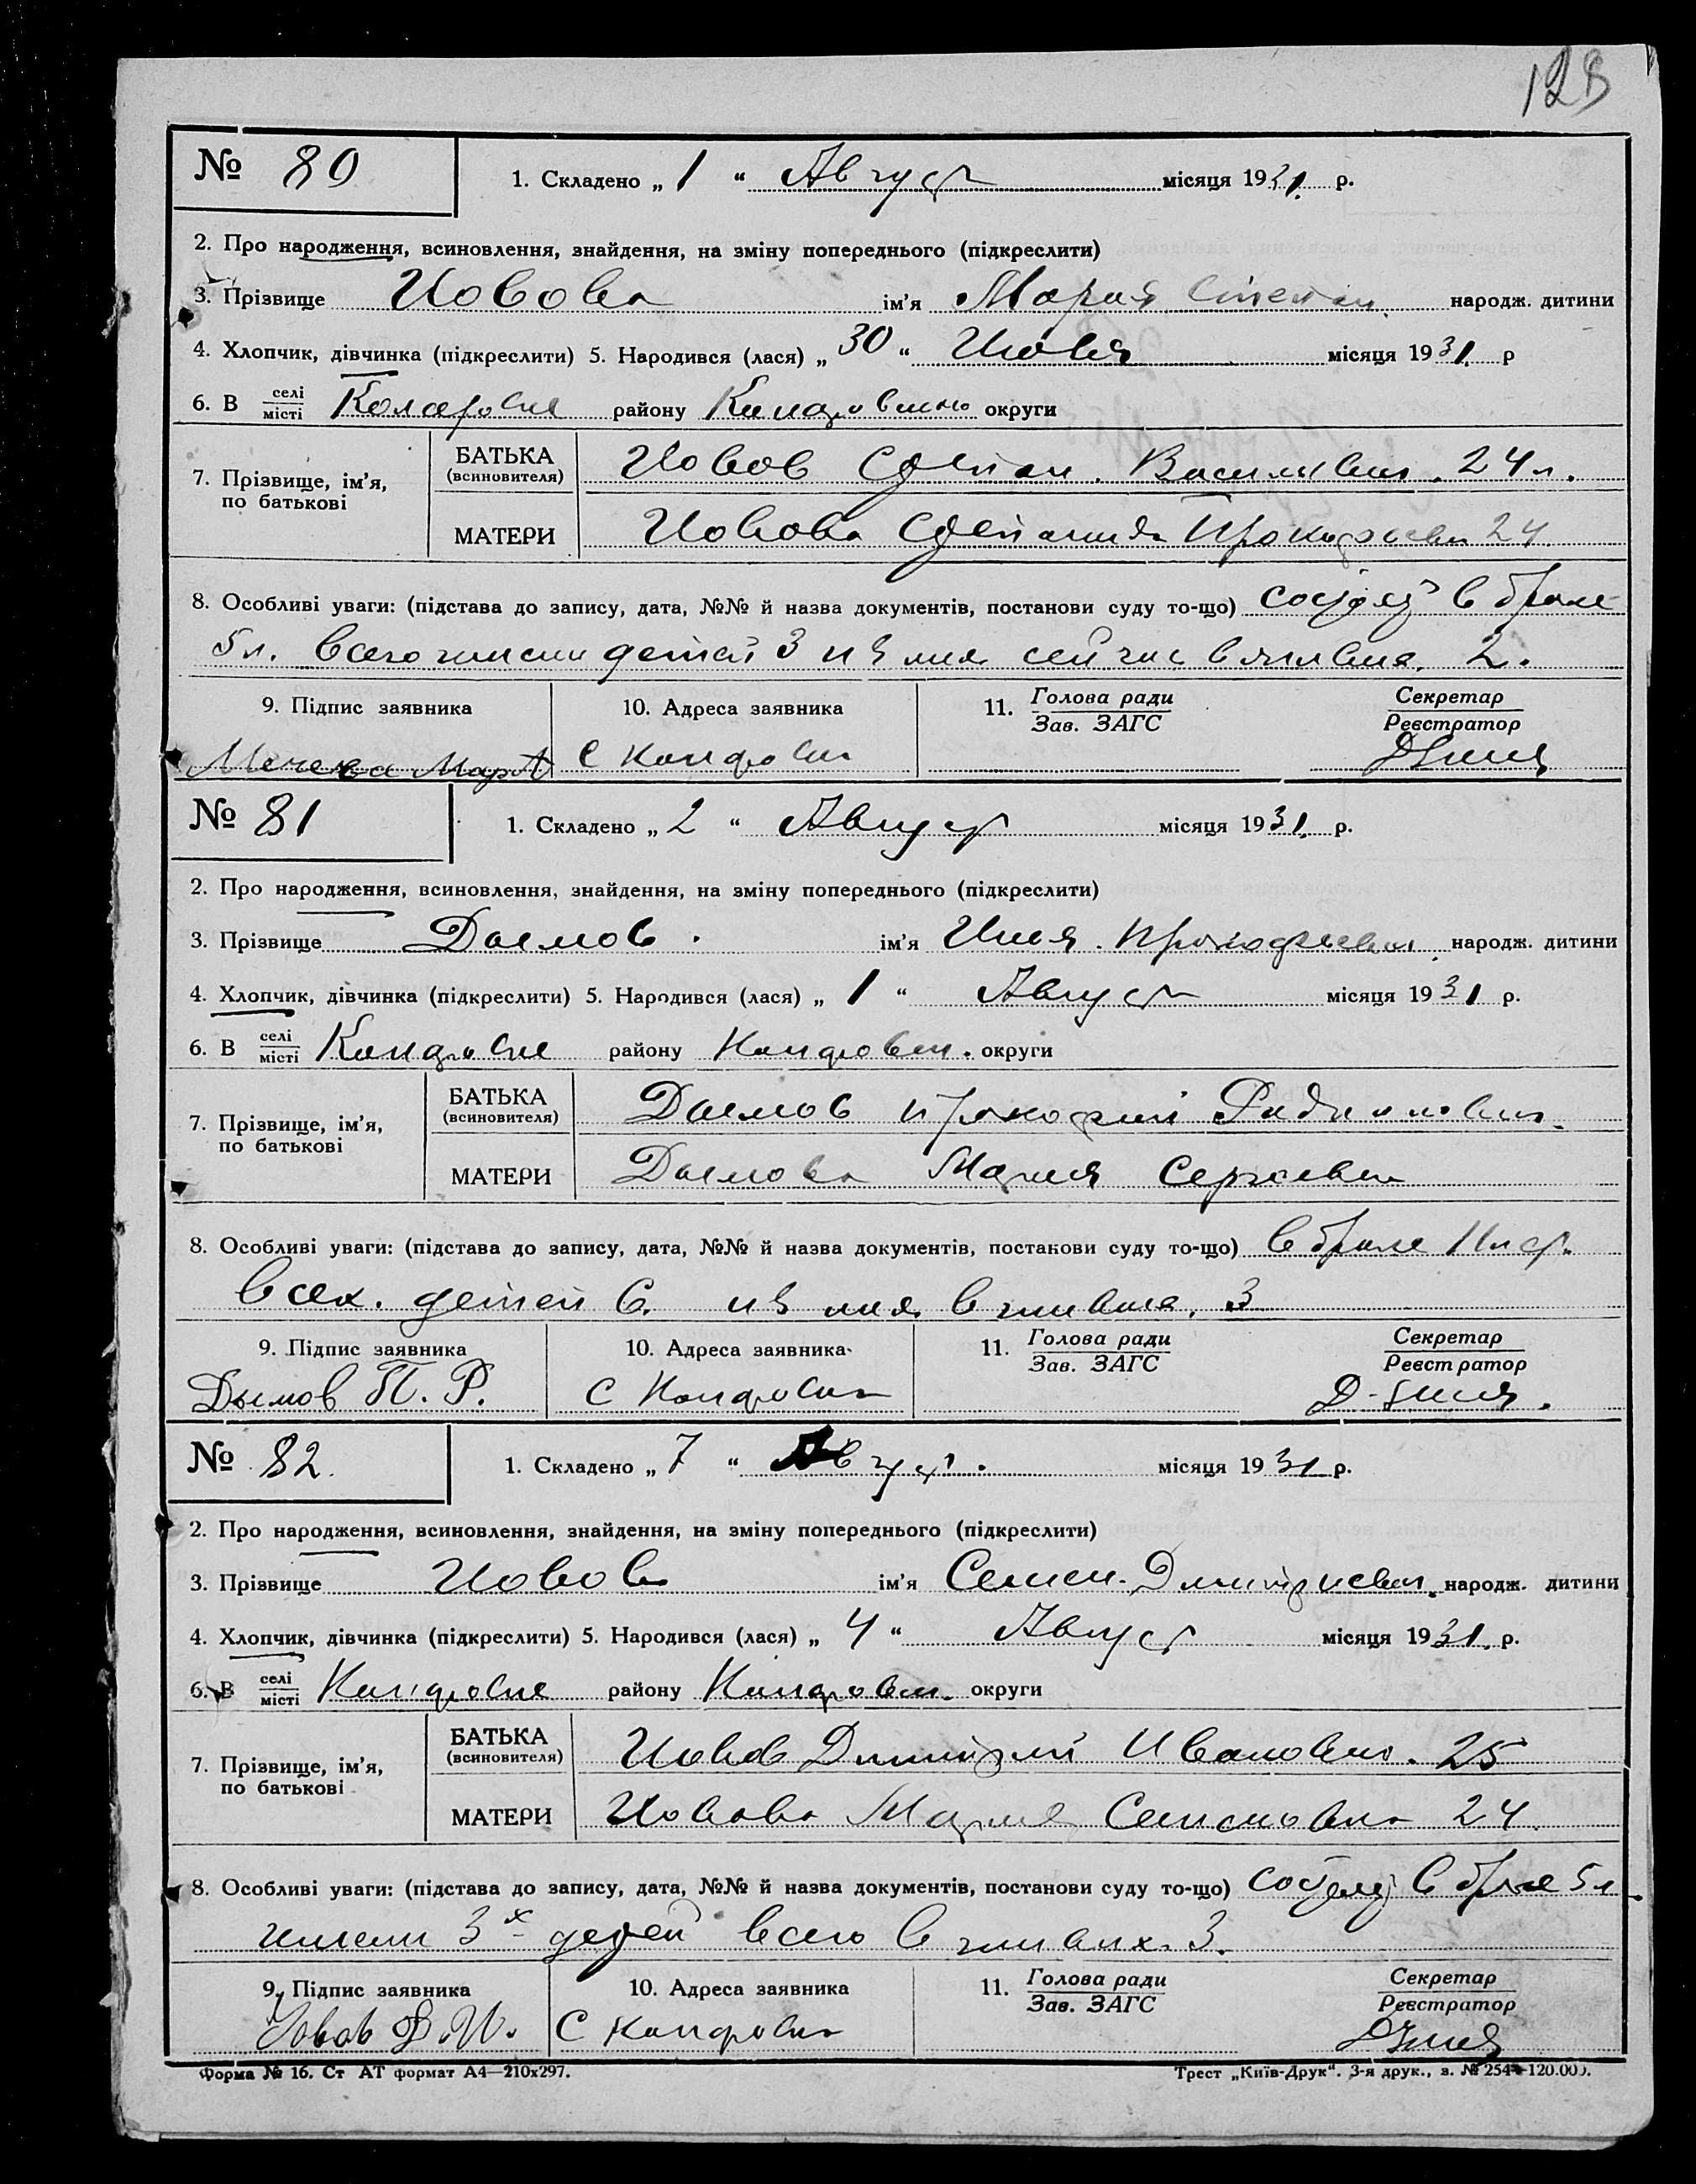 128
№ 80
1. Складено „ 1 “ Август місяця 1931. р.
2. Про народження, всиновлення, знайдення, на зміну попереднього (підкреслити)
3. Прізвище Иовова ім'я Мария Степан. народж. дитини
4. Хлопчик, дівчинка (підкреслити) 5. Народився (лася) „ 30 “ Июля місяця 1931. р
6. В селі місті району округи
7. Прізвище, ім'я, по батькові
БАТЬКА (всиновителя) Иовов Степан Василиевич. 24 л.
МАТЕРИ Иовова Степанида Прокофьевн 24
8. Особливі уваги: (підстава до запису, дата, №№ й назва документів, постанови суду то-що) состоят в браке
5 л. всего детей 3 из них сейчас в 2.
9. Підпис заявника
10. Адреса заявника
11. Голова ради Зав. ЗАГС
Секретар Реєстратор
Мар
С
№ 81
1. Складено „ 2 “ Август місяця 1931. р.
2. Про народження, всиновлення, знайдення, на зміну попереднього (підкреслити)
3. Прізвище Дымов. ім'я Илья. Прокофьевич народж. дитини
4. Хлопчик, дівчинка (підкреслити) 5. Народився (лася) „ 1 “ Август місяця 1931 р.
6. В селі місті району округи
7. Прізвище, ім'я, по батькові
БАТЬКА (всиновителя) Дымов Прокофий Радионович.
МАТЕРИ Дымова Мария Сергеевн
8. Особливі уваги: (підстава до запису, дата, №№ й назва документів, постанови суду то-що) в браке
всех. детей 6. из них в 3
9. Підпис заявника
10. Адреса заявника
11. Голова ради Зав. ЗАГС
Секретар Реєстратор
Дымов П. Р.
С
№ 82.
1. Складено „ 7 “ Август. місяця 1931 р.
2. Про народження, всиновлення, знайдення, на зміну попереднього (підкреслити)
3. Прізвище Иовов ім'я Семен Димитриевич. народж. дитини
4. Хлопчик, дівчинка (підкреслити) 5. Народився (лася) „ 4 “ Август місяця 1931. р.
6. В селі місті району округи
7. Прізвище, ім'я, по батькові
БАТЬКА (всиновителя) Иовов Димитрий Иванович. 25
МАТЕРИ Иовова Мария Семеновна 24.
8. Особливі уваги: (підстава до запису, дата, №№ й назва документів, постанови суду то-що) состоят в браке 5 л
имели 3х детей всего в живых. 3.
9. Підпис заявника
10. Адреса заявника
11. Голова ради Зав. ЗАГС
Секретар Реєстратор
Иовов Д. И.
С
Форма № 16. Ст АТ формат А4—210x297.
Трест „Київ-Друк“. 3-я друк., з. № 254—120.000.